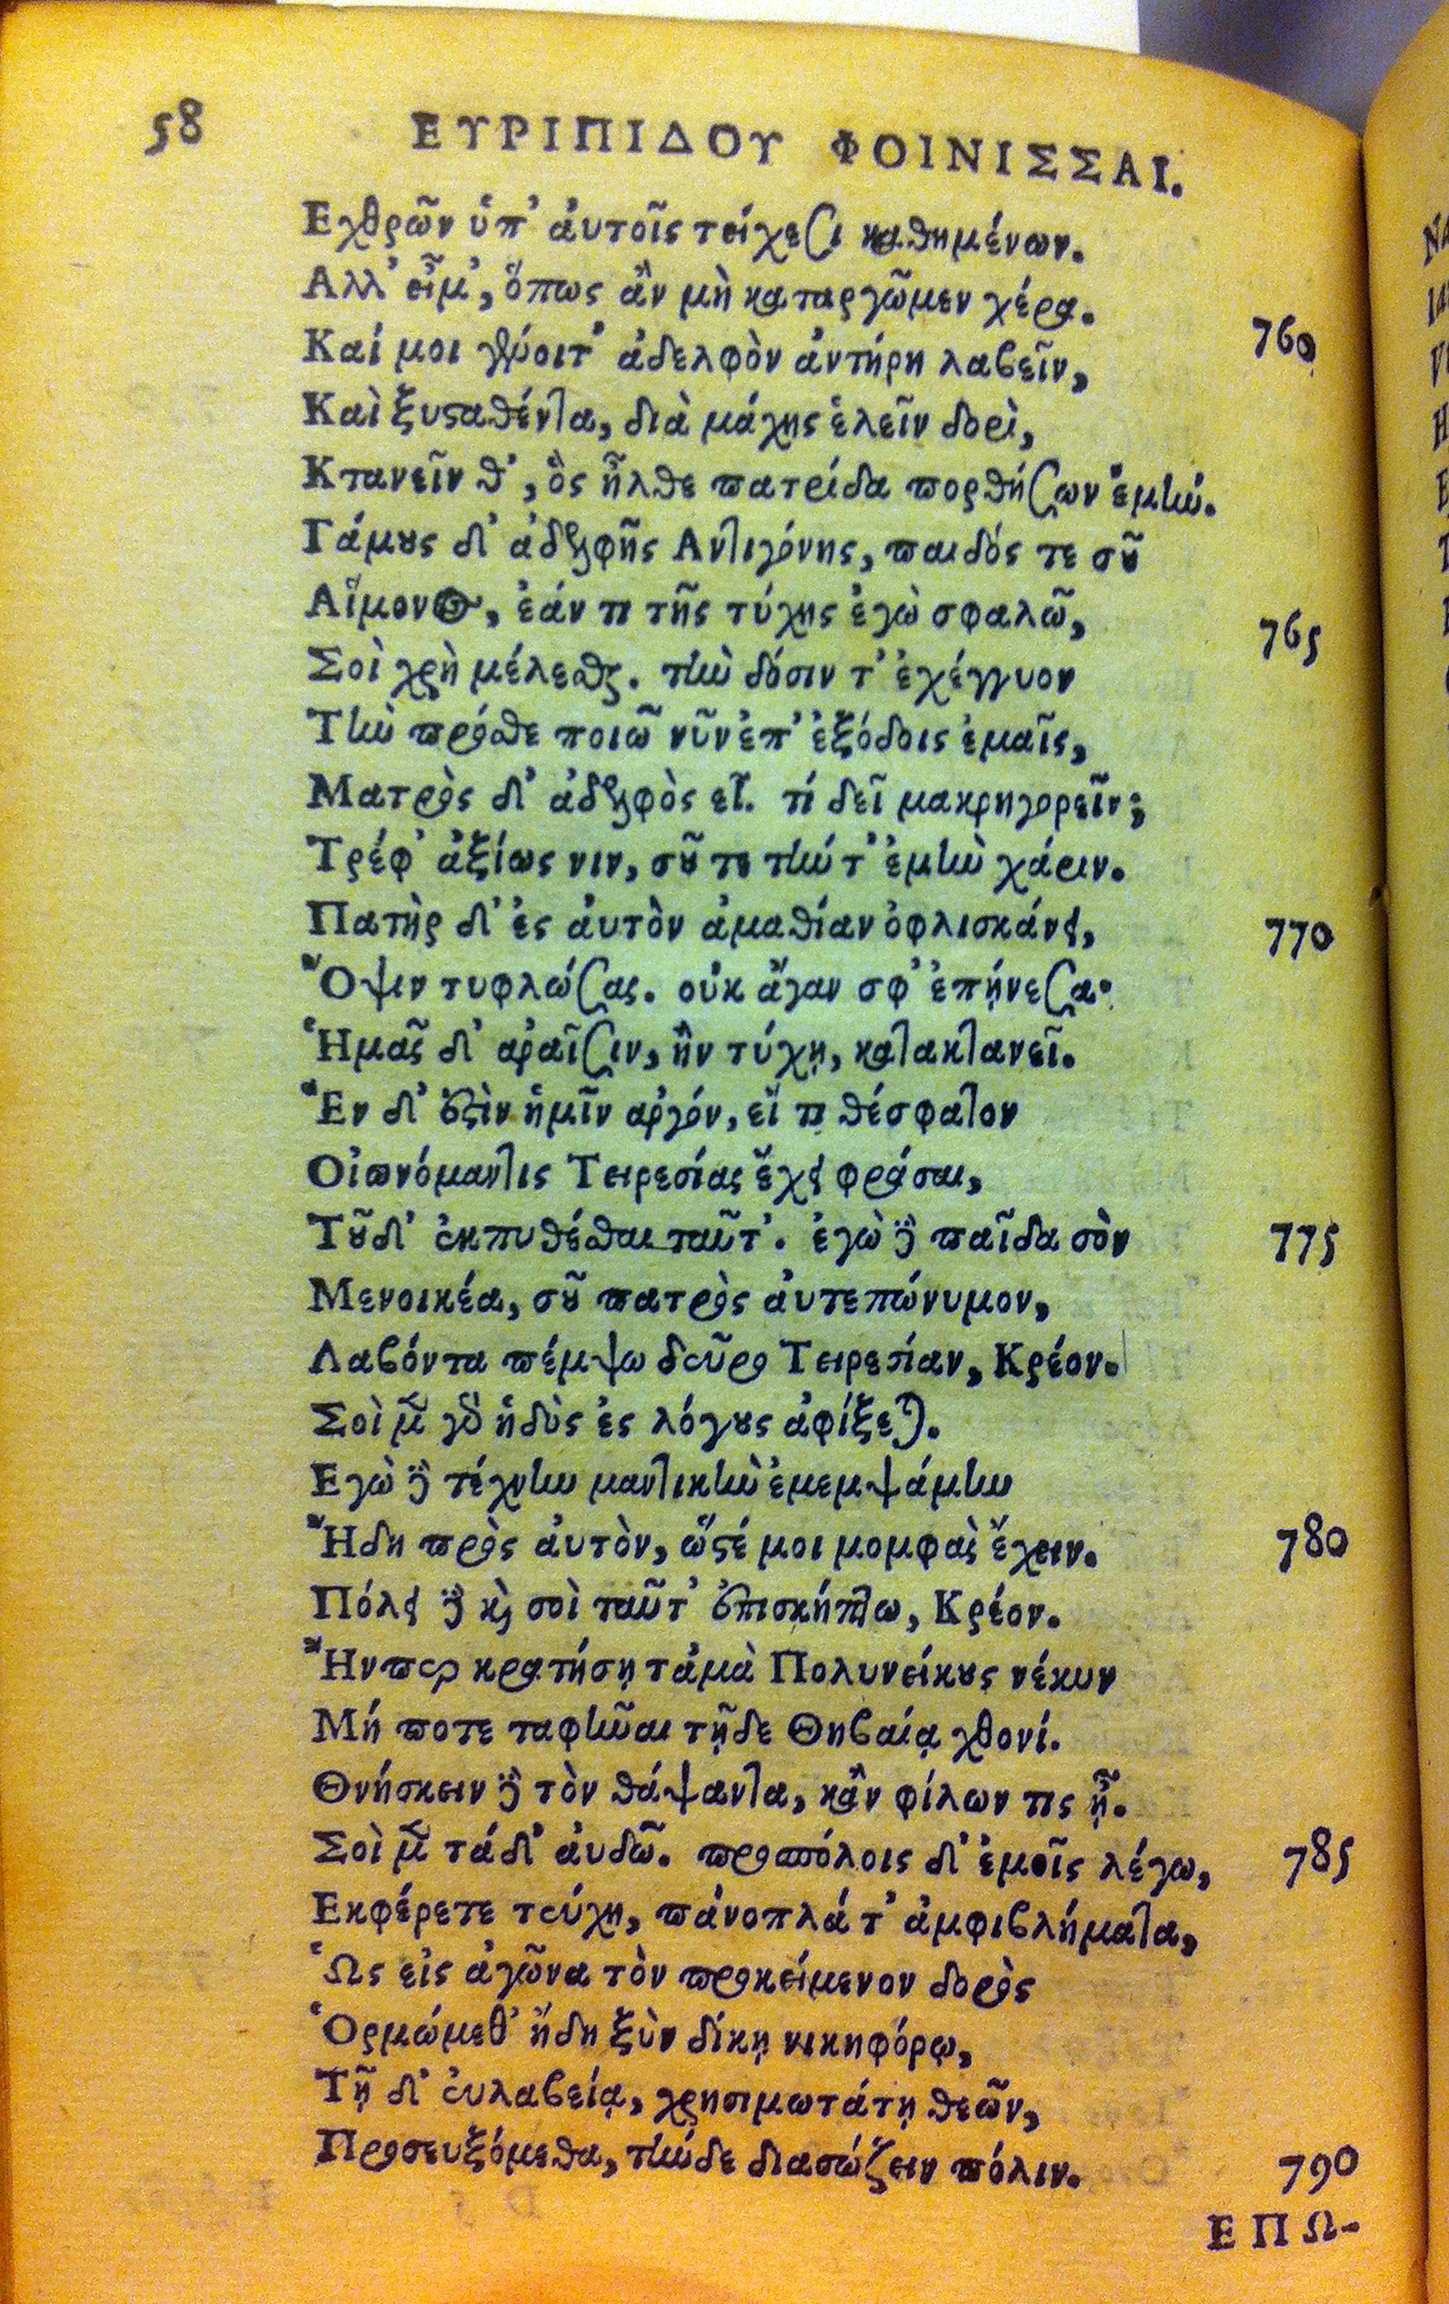 58 ΕΥΡΙΠΙΔΟΥ ΦΟΙΝΙΣΣΑΙ.
Εχθρῶν ὑπ' ἀυτοῖς τείχεσι καθημένων.
Αλλ' εἶμ', ὅπως ἂν μὴ καταργῶμεν χέρα.
Καί μοι γένοιτ' ἀδελφὸν ἀντήρη λαβεῖν, 760
Καὶ ξυσταθέντα, διὰ μάχης ἑλεῖν δορὶ,
Κτανεῖν θ', ὃς ἦλθε πατρίδα πορθήσων ἐμήν.
Γάμους δ' ἀδελφῆς Αντιγόνης, παιδός τε σοῦ
Αἵμονος, ἐάν τι τῆς τύχης ἐγὼ σφαλῶ,
Σοὶ χρὴ μέλεσθαι. τὴν δόσιν τ' ἐχέγγυον 765
Τὴν πρόσθε ποιῶ νῦν ἐπ' ἐξόδοις ἐμαῖς,
Ματρὸς δ' ἀδελφὸς εἶ. τί δεῖ μακρηγορεῖν;
Τρέφ' ἀξίως νιν, σοῦ τε τήν τ' ἐμὴν χάριν.
Πατὴρ δ' ἐς ἀυτὸν ἀμαθίαν ὀφλισκάνει, 770
Ὄψιν τυφλώσας. οὐκ ἄγαν σφ' ἐπῄνεσα·
Ἡμᾶς δ' ἀραῖσιν, ἢν τύχῃ, κατακτανεῖ.
Ἓν δ' ἐστὶν ἡμῖν ἀργόν, εἴ τι θέσφατον
Οἰωνόμαντις Τειρεσίας ἔχει φράσαι,
Τοῦδ' ἐκπυθέσθαι ταῦτ'. ἐγὼ δὲ παῖδα σὸν 775
Μενοικέα, σοῦ πατρὸς ἀυτεπώνυμον,
Λαβόντα πέμψω δεῦρο Τειρεσίαν, Κρέον.
Σοὶ μὲν γὰρ ἡδὺς ἐς λόγους ἀφίξεται.
Εγὼ δὲ τέχνην μαντικὴν ἐμεμψάμην
Ἤδη πρὸς ἀυτὸν, ὥστέ μοι μομφὰς ἔχειν. 780
Πόλει δὲ καὶ σοὶ ταῦτ' ἐπισκήπτω, Κρέον.
Ἤνπερ κρατήσῃ τἀμὰ Πολυνείκους νέκυν
Μή ποτε ταφῆναι τῇδε Θηβαίᾳ χθονί.
Θνήσκειν δὲ τὸν θάψαντα, κἂν φίλων τις ᾖ.
Σοὶ μὲν τάδ' ἀυδῶ. προσπόλοις δ' ἐμοῖς λέγω, 785
Εκφέρετε τεύχη, πάνοπλά τ' ἀμφιβλήματα,
Ὡς εἰς ἀγῶνα τὸν προκείμενον δορὸς
Ὁρμώμεθ' ἤδη ξὺν δίκῃ νικηφόρῳ,
Τῇ δ' ἐυλαβείᾳ, χρησιμωτάτῃ θεῶν,
Προσευξόμεθα, τήνδε διασώζειν πόλιν. 790
ΕΠΩ-